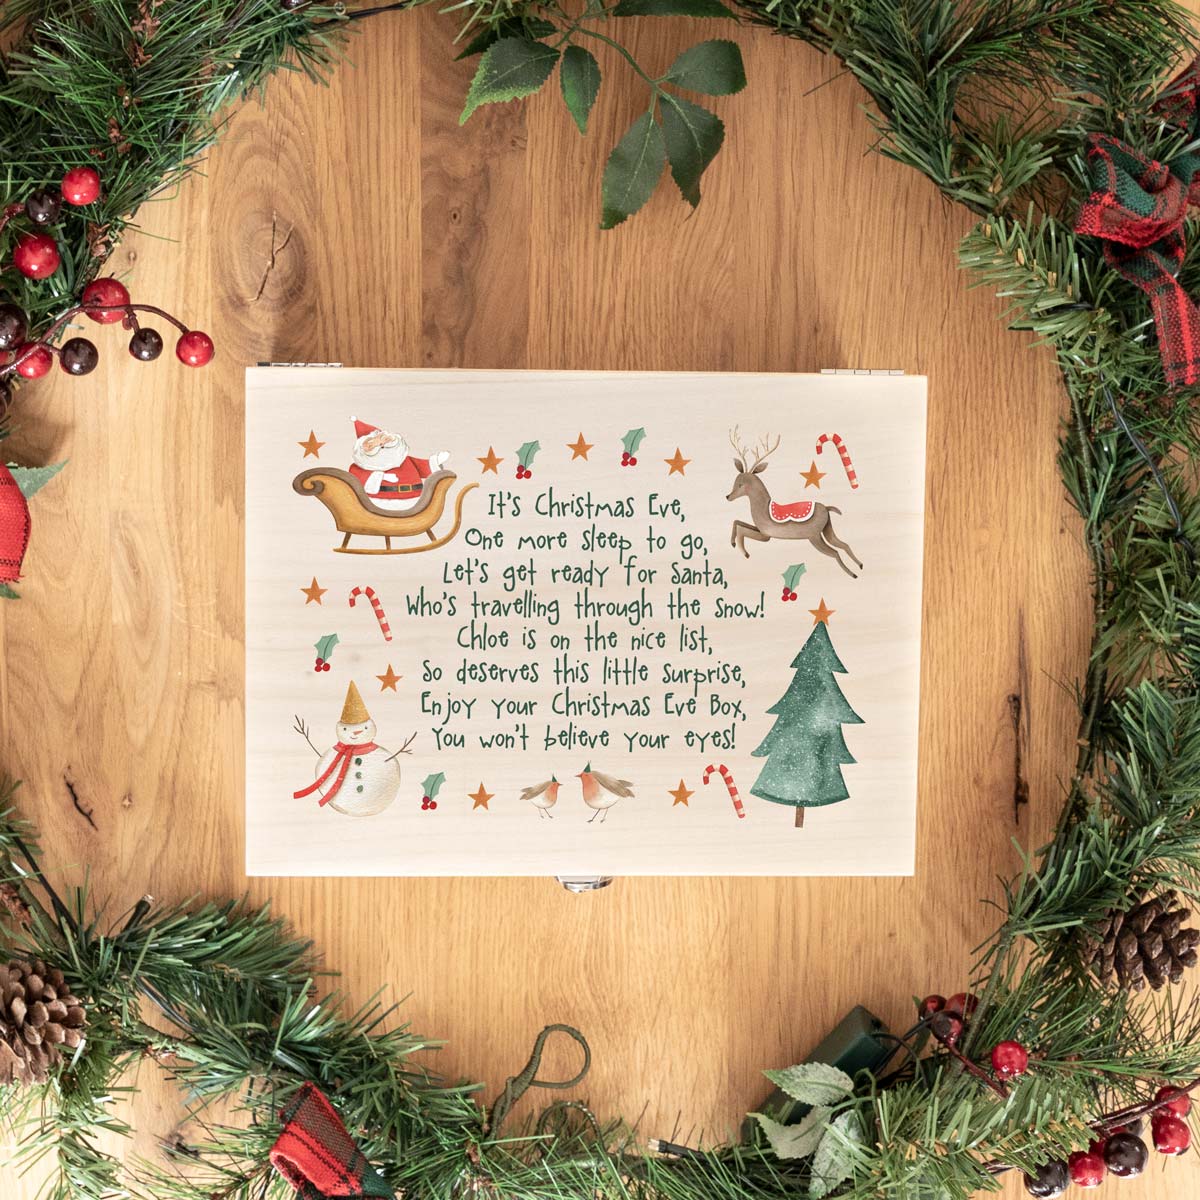 It's Christmas Eve,
One more sleep to go,
Let's get ready for Santa,
Who's travelling through the snow!
Chloe is on the nice list,
So deserves this little surprise,
Enjoy your Christmas Eve Box,
You won't believe your eyes!